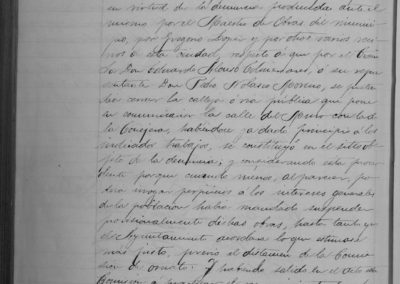 en virtud de la denuncia producida ante el
mismo por el Maestro de Obras del munici
pio, por Gregorio López y por otros varios veci
nos de esta ciudad, respecto á que por el
D. Don Eduardo Alonso Colmenares, ó su repre
sentante Don Pedro Nolasco Moreno, se preten
dia cerrar la calleja ó via pública que pone
en comunicacion la calle del con la de
la Consejera, habiendose ya dado principio á los
indicados trabajos, se constituyó en el sitio ob
jeto de la denuncia; y considerando esta proce
dente porque cuando menos, al parecer, po
dria irrogar perjuicios á los intereses generales
de la poblacion habia mandado suspender
provisionalmente dichas obras, hasta tanto que
el Ayuntamiento acordara lo que estimase
más justo, previo el dictamen de la Comi
sion de ornato: Y habiendo salido en el acto la
Comision